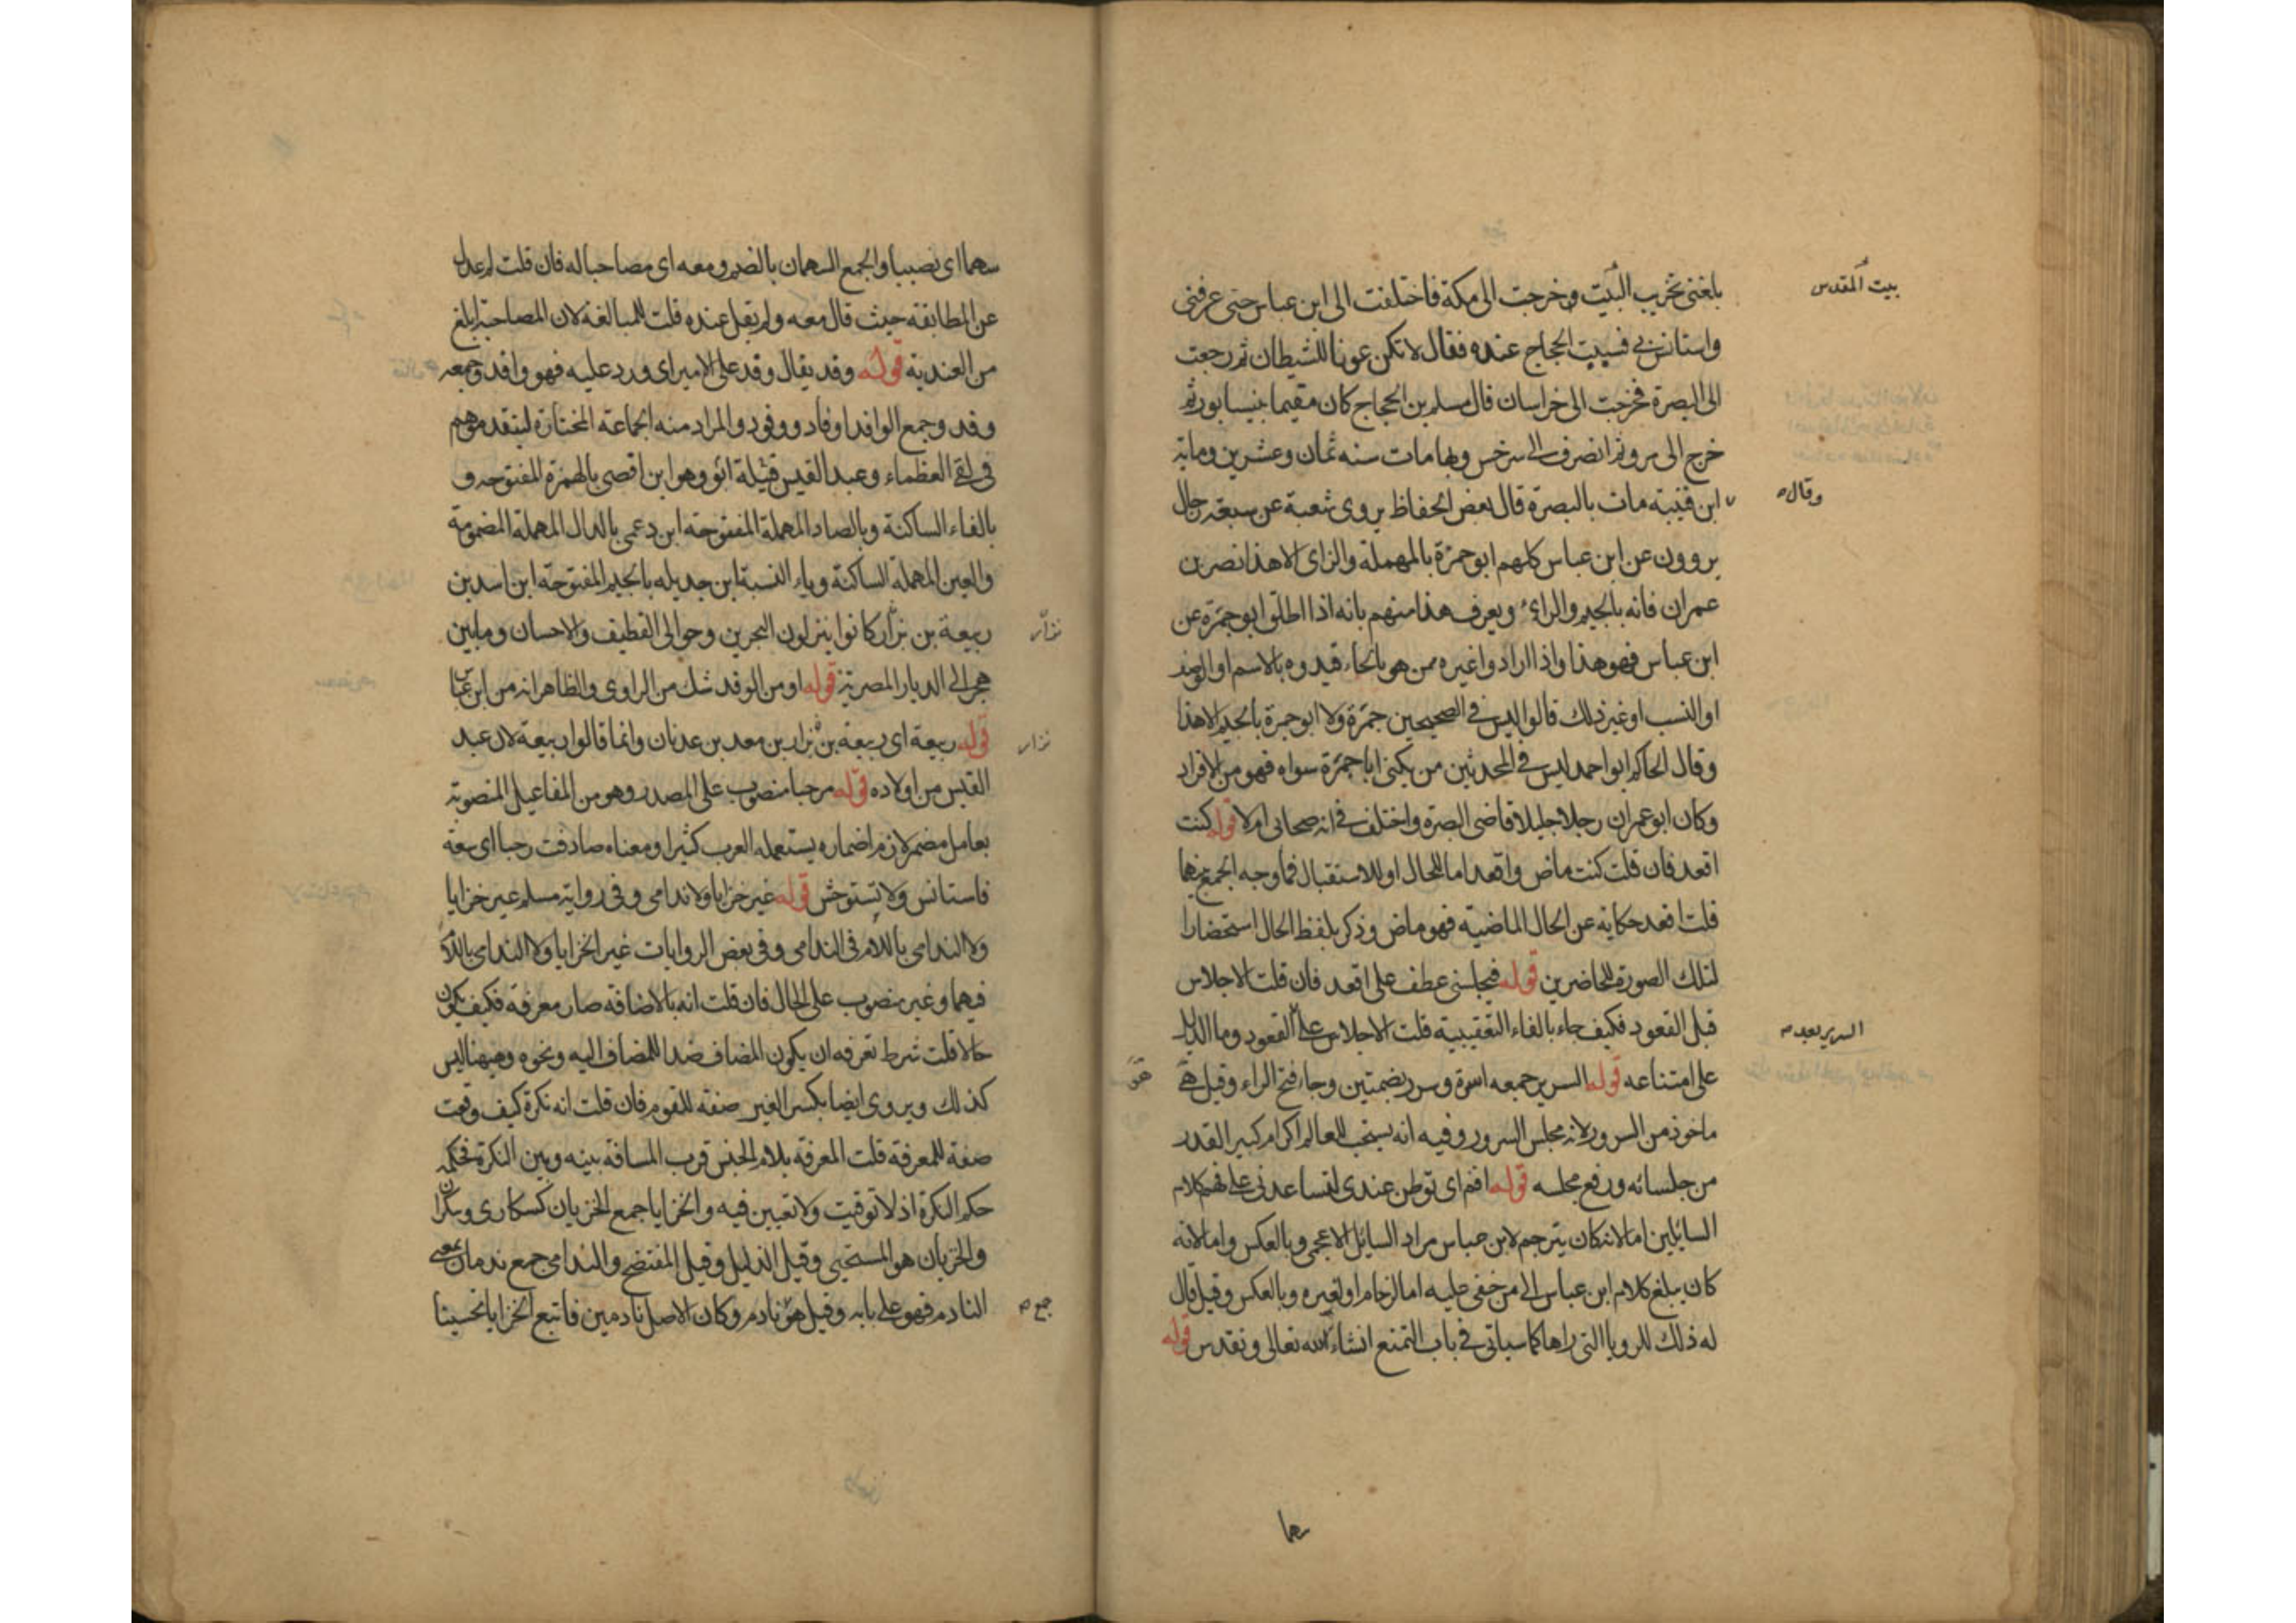 بلغني تخريب البيت وخرجت الى مكة فاختلفت الى ابن عباس حتى عرفني
بيت المقدس
واستانس بي فسببت الحجاج عنده فقال لا تكن عونا للشيطان ثم رجعت
الى البصرة فخرجت الى خراسان قال مسلم بن الحجاج كان مقيما بنيسابور ثم
خرج الى مرو ثم انصرف الى سرخس وبها مات سنه ثمان وعشرين وماية
وقال
ابن قتيبة مات بالبصرة قال بعض الحفاظ يروى شعبة عن سبعة رجال
يروون عن ابن عباس كلهم ابو حمزة بالمهملة والزاى الا هذا نصر بن
عمران فانه بالجيم والراء ويعرف هذا منهم بانه اذا اطلق ابو جمرة عن
ابن عباس فهو هذا واذا ارادوا غيره ممن هو بالحاء قيدوه بالاسم او
او النسب او غير ذلك قالوا ليس في الصحيحين جمرة ولا ابو جمرة بالجيم الا هذا
وقال الحاكم ابو احمد ليس في المحدثين من يكنى ابا جمرة سواه فهو من الافراد
وكان ابو عمران رجلا جليلا قاضى البصرة واختلف في انه صحابى ام لا قوله كنت
اقعد فان قلت كنت ماض واقعد اما للحال او للاستقبال فما وجه الجمع بينهما
قلت اقعد حكاية عن الحال الماضية فهو ماض وذكر بلفظ الحال استحضارا
لتلك الصورة للحاضرين قوله فيجلسنى عطف على اقعد فان قلت الاجلاس
قبل القعود فكيف جاء بالفاء التعقيبية قلت الاجلاس على القعود وما الدليل
السرير بعد
على امتناعه قوله السرير جمعه اسرة وسرر بضمتين وجاء فتح الراء وقيل هو
هو
ماخوذ من السرور لانه مجلس السرور وفيه انه يستحب للعالم اكرام كبير القدر
من جلسائه ورفع مجلسه قوله اقم اى توطن عندى لتساعدنى على فهم كلام
السائلين اما لانه كان يترجم لابن عباس مراد السائل الاعجمى وبالعكس واما لانه
كان يبلغ كلام ابن عباس الى من خفى عليه اما لزحام او لغيره وبالعكس وقيل قال
له ذلك للرويا التى راها كما سياتى في باب التمتع انشاء الله تعالى وتقدس قوله
سهما
سهما اى نصيبا والجمع السهمان بالضم ومعه اى مصاحبا له فان قلت لم عدل
عن المطابقة حيث قال معه ولم يقل عنده قلت للمبالغة لان المصاحبة ابلغ
من العندية قوله وفد يقال وفد على الامير اى ورد عليه فهو وافد وجمعه
وفد وجمع الوافد اوفاد ووفود والمراد منه الجماعة المختارة ليتقدموهم
في لقى العظماء وعبد القيس قبيلة ابو وهو ابن افصى بالهمزة المفتوحه و
بالفاء الساكنة وبالصاد المهملة المفتوحه ابن دعمى بالدال المهملة المضمومة
والعين المهملة الساكنة وياء النسبة ابن جديله بالجيم المفتوحه ابن اسد بن
ربيعة بن نزار كانوا ينزلون البحرين وحوالى القطيف والاحسان وما بين
نزار
هجر الى الديار المصرية قوله او من الوفد شك من الراوى والظاهر انه من ابن عباس
قوله ربيعة اى ربيعة بن نزار بن معد بن عدنان وانما قالوا ربيعة لان عبد
نزار
القيس من اولاده قوله مرحبا منصوب على المصدر وهو من المفاعيل المنصوبة
بعامل مضمر لازم اضماره يستعمله العرب كثيرا ومعناه صادفت رحبا اى سعة
فاستانس ولا تستوحش قوله غير خزايا ولا ندامى وفي رواية مسلم غير خزايا
ولا الندامى باللام في الندامى وفي بعض الروايات غير الخزايا ولا الندامى باللام
فيهما وغير منصوب على الحال فان قلت انه بالاضافة صار معرفة فكيف يكون
حالا قلت شرط تعرفه ان يكون المضاف ضدا للمضاف اليه ونحوه وههنا ليس
كذلك ويروى ايضا بكسر الغير صفة للقوم فان قلت انه نكرة كيف وقعت
صفة للمعرفة قلت المعرفة بلام الجنس قرب المسافة بينه وبين النكرة فحكمه
حكم النكرة اذ لا توقيت ولا تعيين فيه والخزايا جمع الخزيان كسكارى وسكران
والخزيان هو المستحيى وقيل الذليل وقيل المفتضح والندامى جمع ندمان بمعنى
النادم فهو على بابه وقيل هو نادم وكان الاصل نادمين فاتبع الخزايا تحسينا
جمع